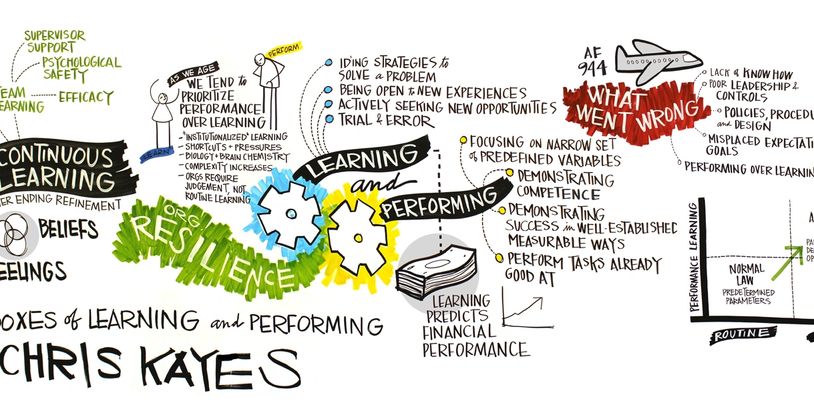 SUPERVISOR
SUPPORT
PSYCHOLOGICAL
SAFETY
EFFICACY
CONTINUOUS
LEARNING
ENDING REFINEMENT
BELIEFS
EELINGS
OXES of LEARNING and PERFORMING
CHRIS KAYES
AS WE AGE
PERFORM
LEARN
WE TEND to
PRIORITIZE
PERFORMANCE
OVER LEARNING
- "INSTITUTIONALIZED" LEARNING
- SHORTCUTS + PRESSURES
- BIOLOGY + BRAIN CHEMISTRY
- COMPLEXITY INCREASES
- ORGS REQUIRE
JUDGEMENT, NOT
ROUTINE LEARNING
ORG.
RESILIENCE
ID'ING STRATEGIES to
SOLVE a PROBLEM
BEING OPEN to NEW EXPERIENCES
ACTIVELY SEEKING NEW OPPORTUNITIES
TRIAL & ERROR
LEARNING
and
PERFORMING
FOCUSING ON NARROW SET
of PREDEFINED VARIABLES
DEMONSTRATING
COMPETENCE
DEMONSTRATING
SUCCESS in WELL-ESTABLISHED
MEASURABLE WAYS
PERFORM TASKS ALREADY
GOOD AT
LEARNING
PREDICTS
FINANCIAL
PERFORMANCE
AF
944
WHAT
WENT WRONG
LACK of KNOW HOW
POOR LEADERSHIP &
CONTROLS
POLICIES, PROCEDU
and DESIGN
MISPLACED EXPECTA
GOALS
PERFORMING OVER LEARNIN
PERFORMANCE LEARNING
NORMAL
LAW
PREDETERMINED
PARAMETERS
ROUTINE